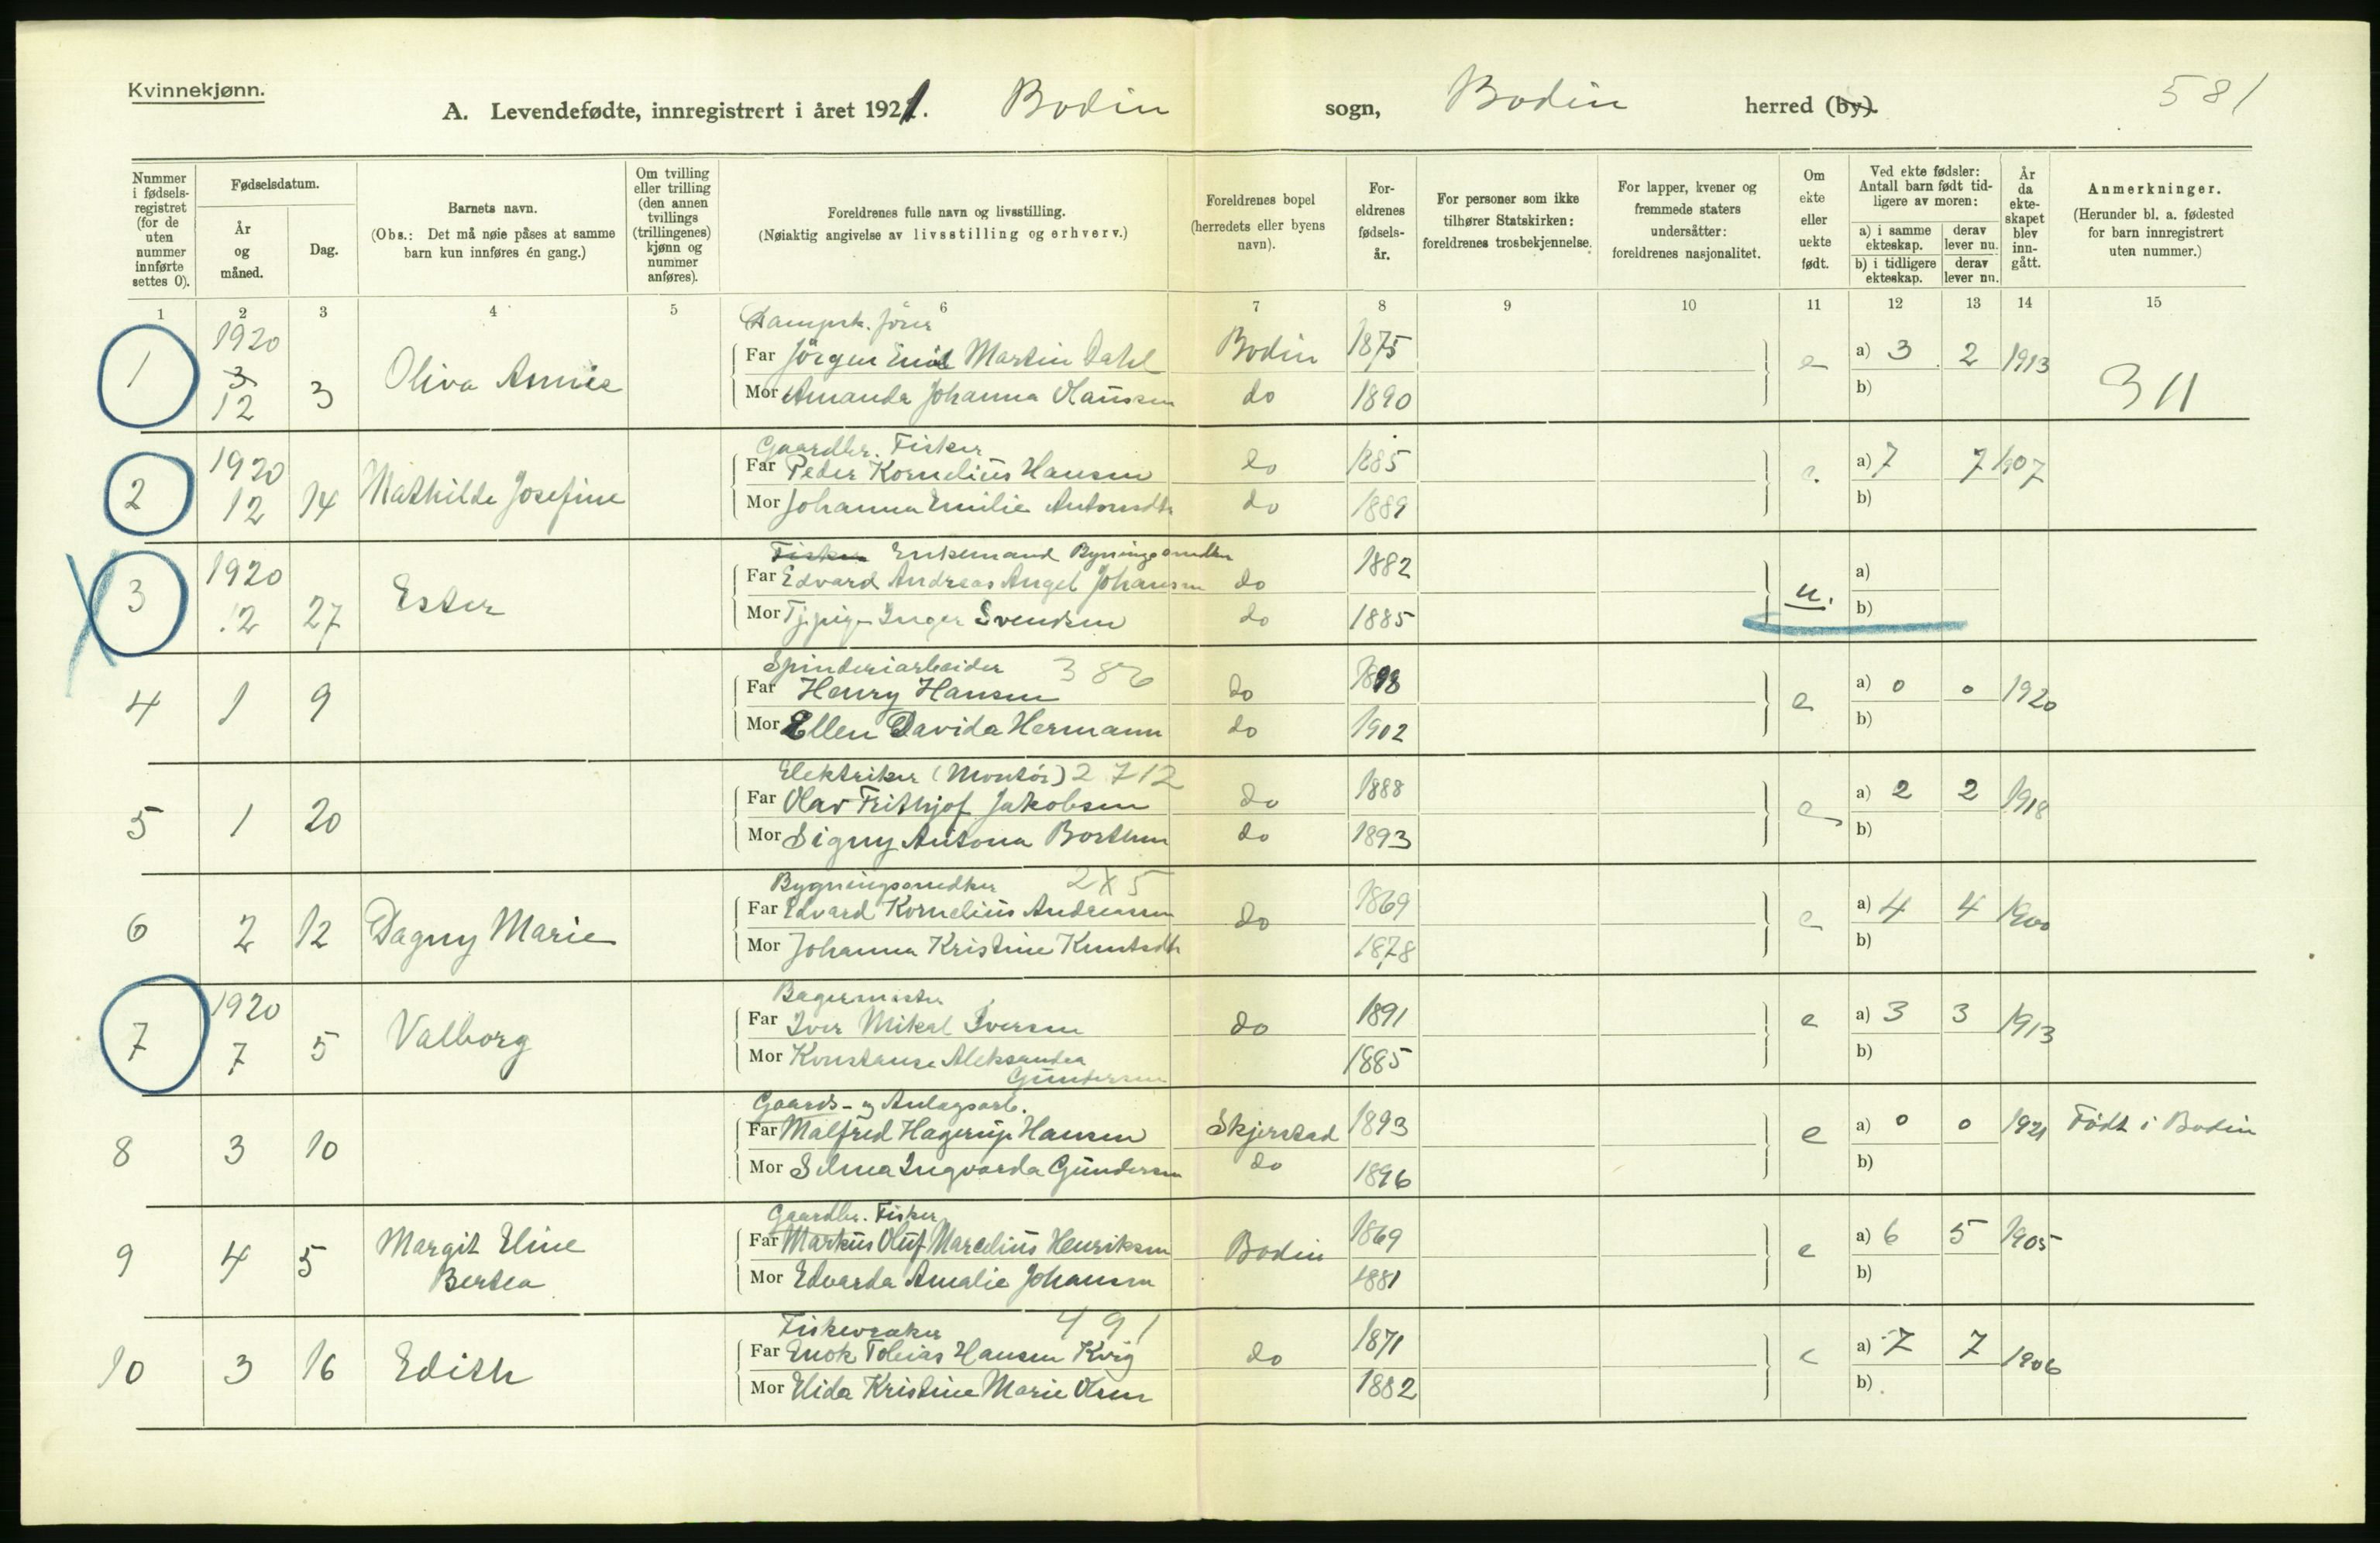 Kvinnekjønn.
A. Levendefødte, innregistrert i året 1921. Bodin sogn, Bodin herred (by). 581
Nummer i fødselsregistret (for de uten nummer innførte settes 0).
Fødselsdatum.
År og måned.
Dag.
Barnets navn.
(Obs.: Det må nøie påses at samme barn kun innføres én gang.)
Om tvilling eller trilling (den annen tvillings (trillingenes) kjønn og nummer anføres).
Foreldrenes fulle navn og livsstilling.
(Nøiaktig angivelse av livsstilling og erhverv.)
Foreldrenes bopel (herredets eller byens navn).
Foreldrenes fødselsår.
For personer som ikke tilhører Statskirken: foreldrenes trosbekjennelse.
For lapper, kvener og fremmede staters undersåtter: foreldrenes nasjonalitet.
Om ekte eller uekte født.
Ved ekte fødsler: Antall barn født tidligere av moren:
a) i samme ekteskap. derav lever nu.
b) i tidligere ekteskap. derav lever nu.
År da ekteskapet blev inngått.
Anmerkninger.
(Herunder bl. a. fødested for barn innregistrert uten nummer.)
1 2 3 4 5 6 7 8 9 10 11 12 13 14 15
1 1920 3 12 3 Oliva Annie
Far Jörgen Emil Martin Dahl Bodin 1875 e a) 3 2 1913
Mor Amanda Johanna Hansen do 1890 b) 311
2 1920 12 14 Mathilde Josefine
Gaardbr. Fisker
Far Peder Kornelius Hansen do 1885 e. a) 7 7 1907
Mor Johanna Emilie Antonsdtr do 1889 b)
3 1920 12 27 Ester
Fisker Enkemand Bygningssnedker
Far Edvard Andreas Angel Johansen do 1882 u. a)
Mor Tj.pige Inger Svendsen do 1885 b)
4 1 9
Spinderiarbeider 386
Far Henry Hansen do 1898 e a) 0 0 1920
Mor Ellen Davida Hermann do 1902 b)
5 1 20
Elektriker (Montör) 2712
Far Olav Frithjof Jakobsen do 1888 e a) 2 2 1918
Mor Signy Antona Borthen do 1893 b)
6 2 12 Dagny Marie
Bygningssnedker 2X5
Far Edvard Kornelius Andreassen do 1869 e a) 4 4 1900
Mor Johanna Kristine Knutsdtr 1878 b)
7 1920 7 5 Valborg
Bagermester
Far Iver Mikal Iversen do 1891 e a) 3 3 1913
Mor Konstanse Aleksandra Gundersen 1885 b)
8 3 10
Gaards- og Anlagsarb.
Far Malfred Hagerup Hansen Skjerstad 1893 e a) 0 0 1921 Födt i Bodin
Mor Selma Ingvarda Gundersen do 1896 b)
9 4 5 Margit Eline Bertea
Gaardbr. Fisker
Far Markus Oluf Marelius Henriksen Bodin 1869 e a) 6 5 1905
Mor Edvarda Amalie Johansen 1881 b)
10 3 16 Edith
Fiskevraker 491
Far Enok Tobias Hansen Kvig do 1871 e a) 7 7 1906
Mor Elida Kristine Marie Olsen 1882 b)